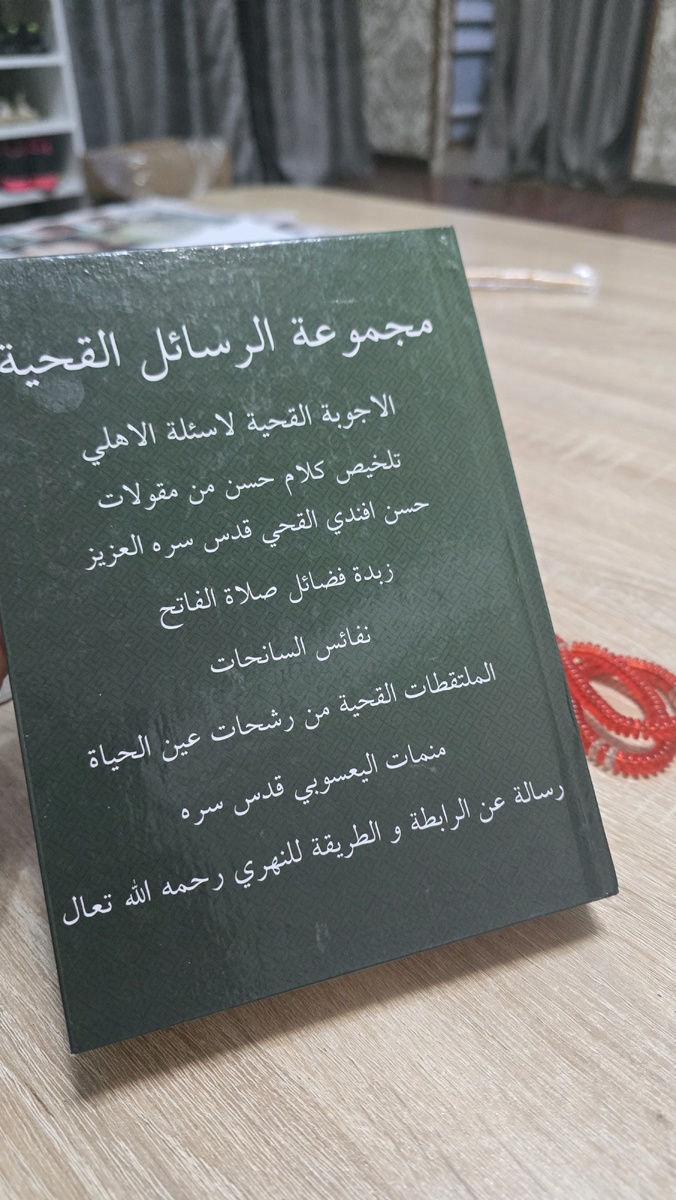 مجموعة الرسائل القحية
الاجوبة القحية لاسئلة الاهلي
تلخيص كلام حسن من مقولات
حسن افندي القحي قدس سره العزيز
زبدة فضائل صلاة الفاتح
نفائس السانحات
الملتقطات القحية من رشحات عين الحياة
منمات اليعسوبي قدس سره
رسالة عن الرابطة و الطريقة للنهري رحمه الله تعال